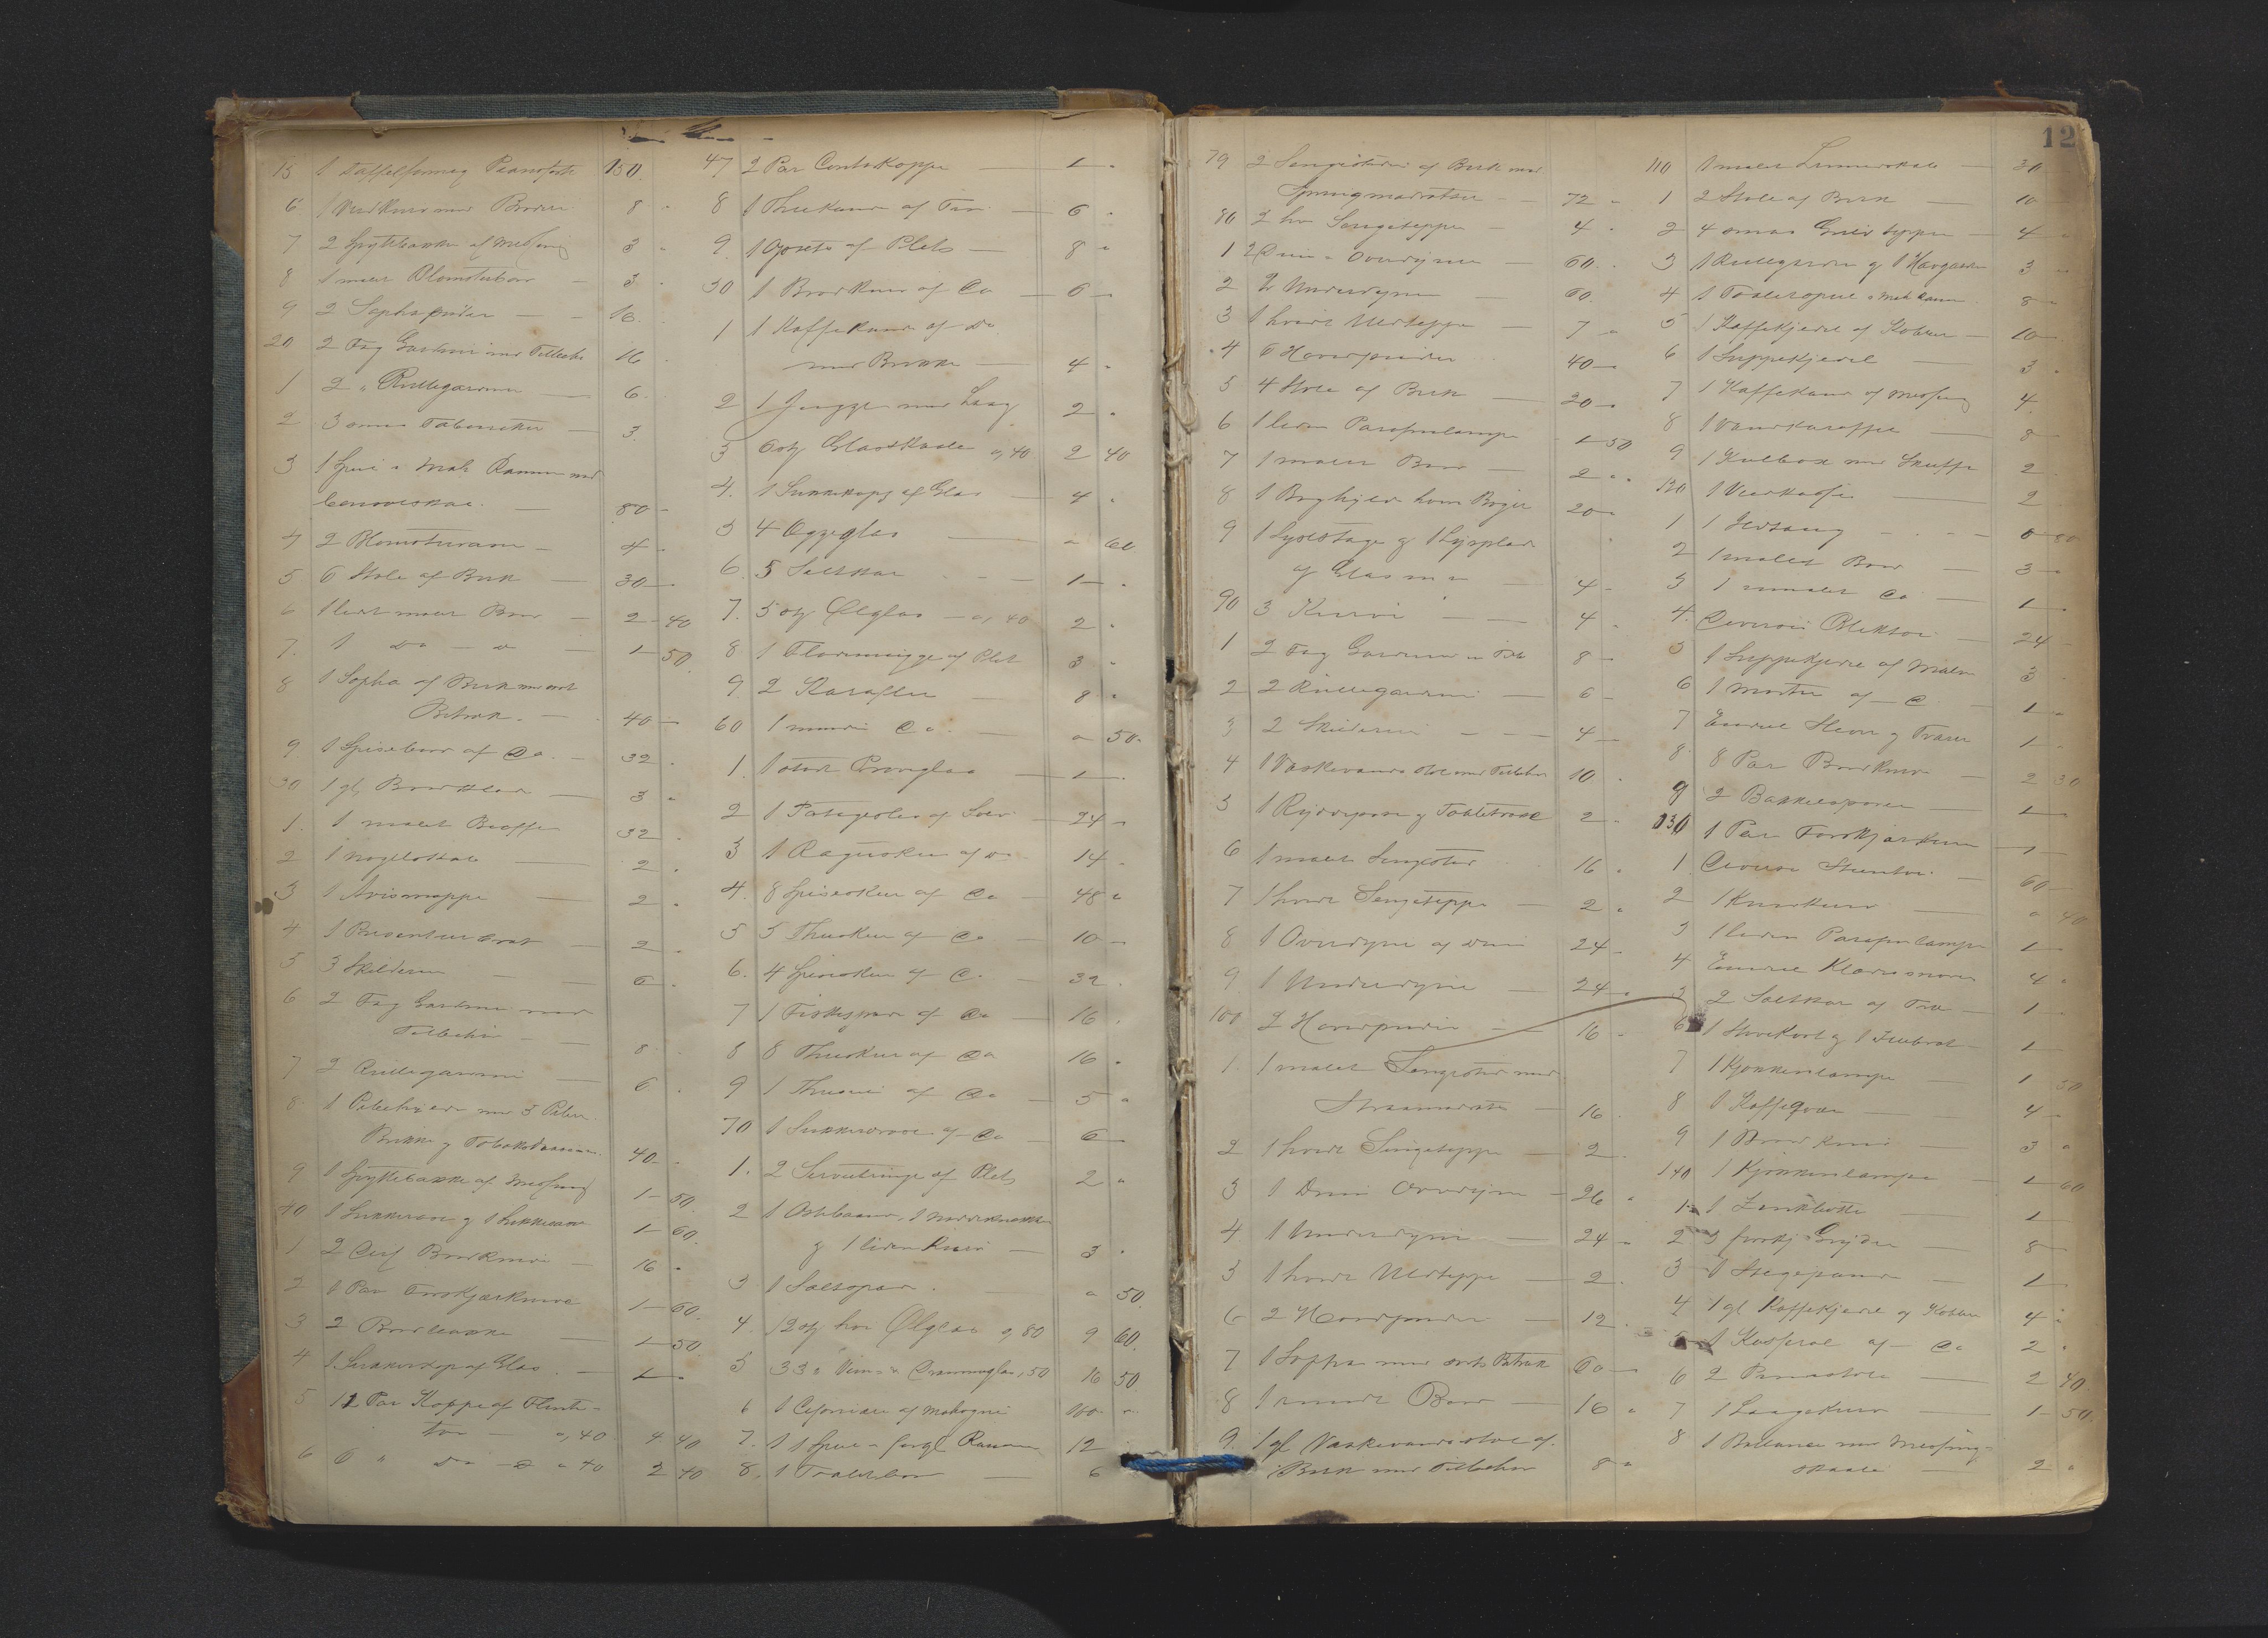 15 1 Taffelformig Pianoforte 150.
6 1 Vedkurv med Broderi 8 "
7 2 Spyttebakker af Messing 3 "
8 1 malet Blomsterbord 3 "
9 2 Sophapuder 16.
20 2 Fag Gardiner med Tilbehør 16
1 2 " Rullegardiner 6.
2 3 smaa Tabouretter 3.
3 1 Speil i Mah. Ramme med
80 –
4 2 4 "
5 6 Stole af Birk 30 –
6 1 lidet malet Bord 2 – 40
7. 1 do – do 1 – 50.
8 1 Sopha af Birk med sort
Betræk. 40 –
9 1 Spisebord af do. 32.
30 1 gl. 3 "
1. 1 malet 32.
2 1 Nøgleskab 2.
3 1 Avismappe 2.
4 1 Presenteerbræt 2.
5 3 Skilderier 6.
6 2 Fag Gardiner med
Tilbehør 8.
7 2 Rullegardiner 6.
8. 1 Pibehylde med 3 Piber
Brikke og 40 –
9 1 Spyttebakke af Messing 1 – 50.
40 1 Sukkerdaase og 1 1 – 60.
1 2 Bordknive 16 "
2 1 Par Forskjærknive 1 – 60.
3 2 Brødbakke 1 – 50
4 1 Sukkerkop af Glas 1 –
5 12 Par Koppe af Flint-
tøi a, 40 4 40
6 6 " do – a 40 2 40
47 2 Par Kopper 1 – "
8 1 Theekande af Tin 6 "
9. 1 Opsats af Plet 8 "
50 1 Brødkurv af Do 6 –
1 1 Kaffekande af do
med Brikke 4 "
2 1 Jugge med Laag 2 "
3 6 stk Glasskaale a, 40 2 40
4. 1 Sukkerkop af Glas 4 "
5 4 Æggeglas " 60
6. 5 Saltkar 1 – "
7. 5 stk Ølglas – a, 40 2 "
8 1 Flødemugge af Plet 3 "
9. 2 Karafler 8 "
60 1 mindre Do " 50 –
1. 1 stort 1 –
2 1 Potageske af Sølv 24 –
3 1 Raguske af do 14 "
4. 8 Spiseskeer af Do 48 "
5 5 Theskeer af Do 10 –
6. 4 Spiseskeer af Do 32.
7 1 Fiskespade af Do 16.
8 8 Theskeer af Do 16 "
9 1 Thesi af Do 5 "
70 1 Sukkerdaase af Do 6 –
1. 2 Servietringe af Plet 2 "
2 1 Ostebaand, 1 Nøddeknækker
og 1 liden Kurv 3 "
3 1 Saltspade " 50.
4. 12 stk hvi Ølglas a, 80 9 60.
5 33 " Vin- & a, 50 16 50.
6 1 af Mahogni 100 "
7. 1 Speil i forgl. Ramme 12
8. 1 Toiletbord 6
12
79 2 Sengesteder af Birk med
Springmadratser 72 "
80 2 hv Sengetepper 4 "
1 2 Duun Overdyner 60.
2 2 Underdyner 60.
3 1 hvidt Uldteppe 7 "
4 6 Hovedpuder 40 –
5 4 Stole af Birk 20 –
6 1 liden Parafinlampe 1 – 50
7 1 malet Bord 2 "
8 1 Boghylde hvori Bøger 20 "
9 1 Lysestage og 1
af Glas m m 4 –
90 3 Kurve 4 "
1 2 Fag Gardiner m Tilb 8 –
2 2 Rullegardiner 6 –
3 2 Skilderier 4 –
4 1 Vaskevandsstol med Tilbehør 10.
5 1 2 "
6 1 malet Sengested 16 "
7 1 hvidt Sengeteppe 2 "
8 1 Overdyne af Duun 24 –
9 1 Underdyne 24 "
100 2 Hovedpuder 16 –
1. 1 malet Sengested med
Straamadrats 16.
2 1 hvidt Sengeteppe 2.
3 1 Duun Overdyne 26 "
4 1 Underdyne 24 "
5 1 hvidt Uldteppe 2.
6 2 Hovedpuder 12.
7 1 Sopha med sort Betræk 60 –
8 1 rundt Bord 16 "
9. 1 gl. Vaskevandsstol af
Birk med Tilbehør 8 "
110 1 malet Linnedskab 30
1 2 Stole af Birk 10
2 4 smaa Gulvtepper 4 "
3 1 Rullegardin og 1 3 "
4 1 Toiletspeil i Mah Ramme 8 –
5 1 Kaffekjedel af Kobber 10 –
6 1 Suppekjedel 3.
7 1 Kaffekande af Messing 4.
8 1 Vandkaraffel 8 –
9 1 Kulbox med Skuffe 2
120 1 Vedkasse 2
1 1 Ildtang 0 80
2 1 malet Bord 3 –
3 1 malet Do 1 –
4. Diverse Bliktøi 24 –
5 1 Suppekjedel af Malm 3
6 1 Morter af – Do 1 –
7 Endeel Steen og Trævar 1 –
8 8 Par Bordknive 2 30
9 2 1 –
130 1 Par Forskjærknive 1 –
1. Diverse Steentøi 60 –
2 1 " 40
3 1 liden Parafinlampe 1 –
4 Endeel 4 "
5 2 Saltkar af Træ 1 –
6 1 og 1 1 –
7 1 Kjøkkenlampe 1 50
8 1 Kaffeqværn 4 –
9 1 Brødkniv 3 "
140 1 Kjøkkenlampe 1 60
1 1 Zinkbøtte 1
2 3 forskj. Gryder 8 –
3 1 Stegepande 1
4 1 gl Kaffekjedel af Kobber 4 "
5 1 Kasserol af – Do 2 "
6 2 Pindestole 2 40.
7 1 Laagekurv 1 – 50.
8 1 Ballance med Messing-
skaale 2 "